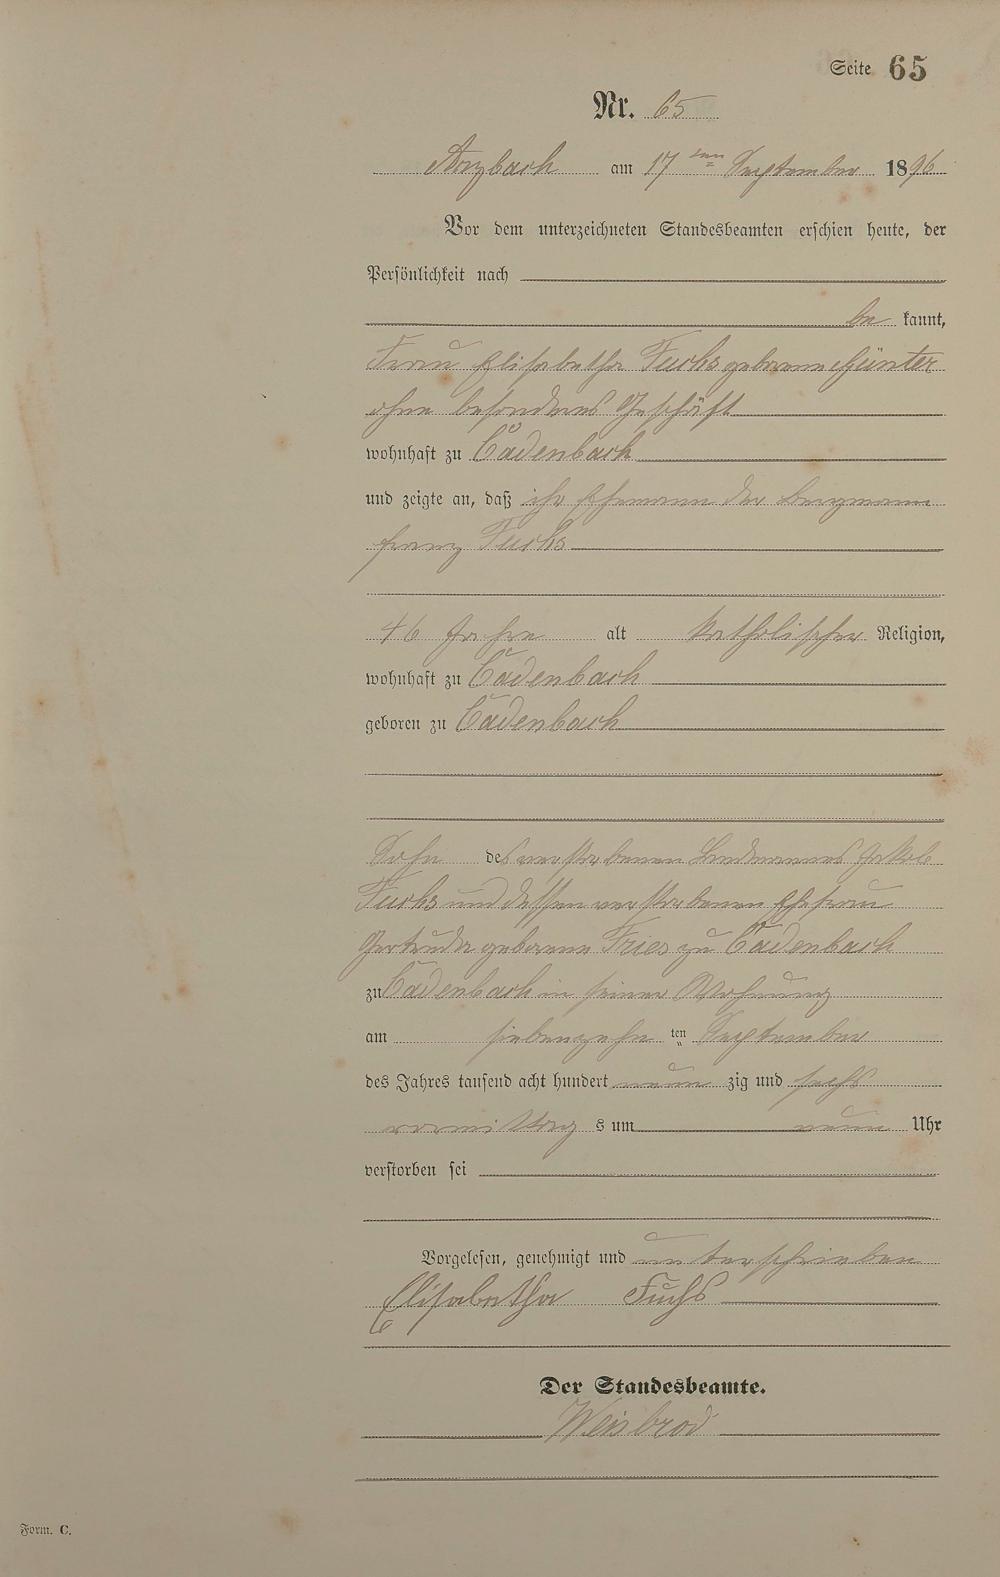 Seite 65
Nr. 65
Arzbach am 17ten September 1896
Vor dem unterzeichneten Standesbeamten erschien heute, der
Persönlichkeit nach
be kannt,
Frau Elisabetha Fuchs geborene Günter
ohne besonderes Geschäft
wohnhaft zu Cadenbach
und zeigte an, daß ihr Ehemann der Bergmann
Franz Fuchs
46 Jahre alt katholischer Religion,
wohnhaft zu Cadenbach
geboren zu Cadenbach
Sohn des verstorbenen Landmannes Jakob
Fuchs und dessen verstorbenen Ehefrau
Gertruda geborene Fries zu Cadenbach
zu Cadenbach in seiner Wohnung
am siebenzehn ten September
des Jahres tausend acht hundert neun zig und sechs
vormittag s um neun Uhr
verstorben sei
Vorgelesen, genehmigt und unterschrieben
Elisabetha Fuchs
Der Standesbeamte.
Weisbrod
Form. C.